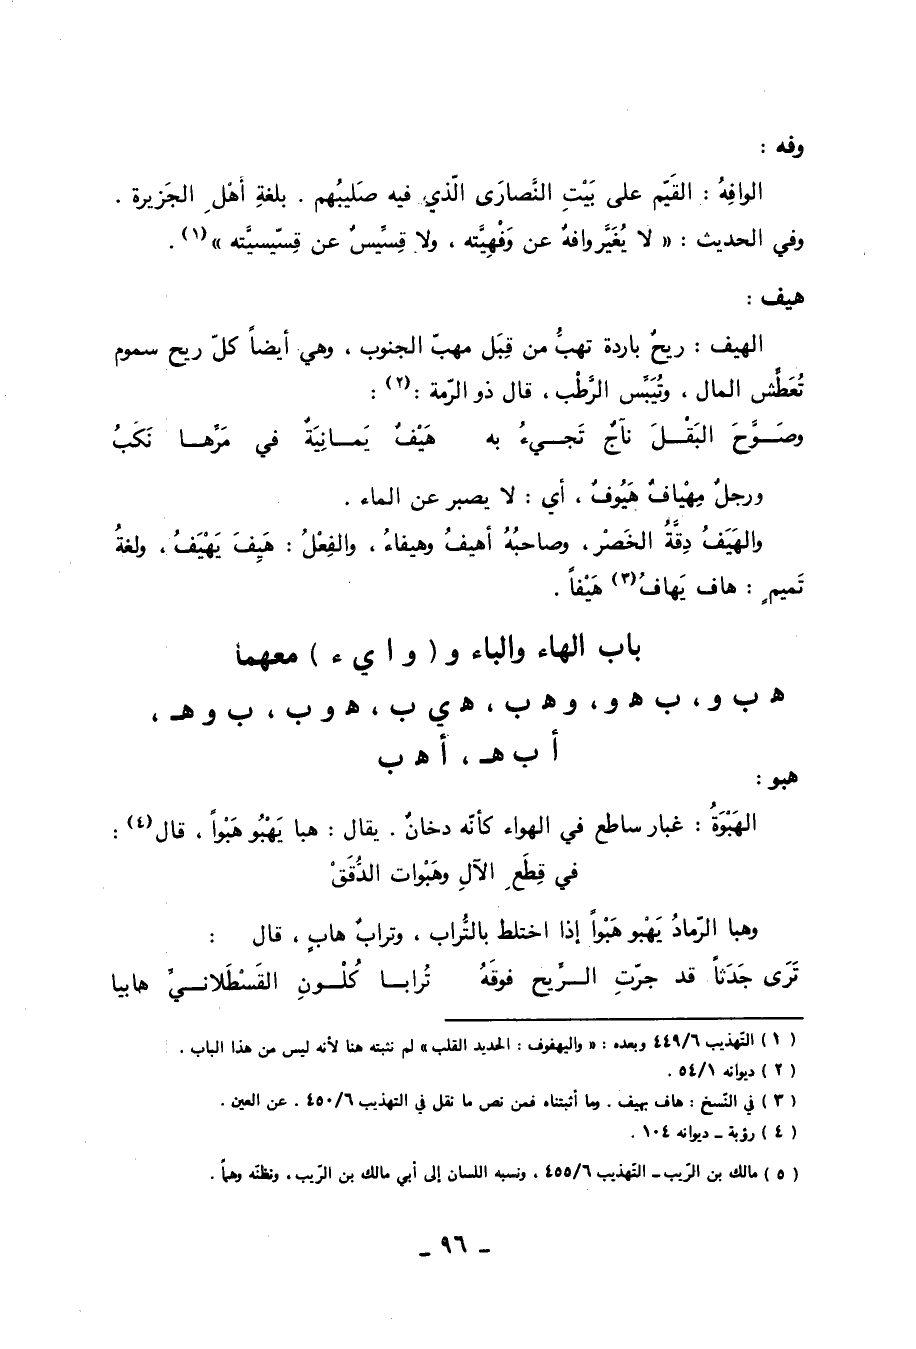 وفه :
الوافِهُ : القَيّم على بَيْتِ النَّصارَى الّذي فيه صَليبُهم . بلغةِ أهْلِ الجَزيرة .
وفي الحديث : « لا يُغَيَّر وافهٌ عن وَفْهِيَّته ، ولا قِسِّيسٌ عن قِسّيسيَّته »(١) .
هيف :
الهيف : ريحٌ باردة تهبُّ من قِبَل مهبّ الجنوب ، وهي أيضاً كلّ ريح سموم
تُعَطِّش المال ، وتُيَبِّس الرَّطْب ، قال ذو الرّمة :(٢) :
وصَوَّحَ البَقْلَ نآجٌ تَجيءُ به هَيْفٌ يَمانِيَةٌ في مَرِّها نَكَبُ
ورجلٌ مِهْيافٌ هَيُوفٌ ، أي : لا يصبر عن الماء .
والهَيَفُ دِقَّةُ الخَصْر ، وصاحبُهُ أهيفُ وهيفاءُ ، والفِعْلُ : هَيِفَ يَهْيَفُ ، ولغةُ
تَميمٍ : هاف يَهافُ(٣) هَيْفاً .
باب الهاء والباء و ( و ا ي ء ) معهما
ه ب و ، ب ه و ، و ه ب ، ه ي ب ، ه و ب ، ب و هـ ،
أ ب هـ ، أ ه ب
هبو :
الهَبْوَةُ : غبار ساطع في الهواء كأنّه دخانٌ . يقال : هبا يَهْبُو هَبْواً ، قال(٤) :
في قِطَعِ الآلِ وهَبْوات الدُّقَقْ
وهبا الرّمادُ يَهْبو هَبْواً إذا اختلط بالتُّراب ، وترابٌ هابٍ ، قال :
تَرَى جَدَثاً قد جرّتِ الرِّيح فوقَهُ تُرابا كُلْونِ القَسْطَلانيِّ هابيا
( ١ ) التّهذيب ٤٤٩/٦ وبعده : « واليهفوف : الحديد القلب » لم نثبته هنا لأنه ليس من هذا الباب .
( ٢ ) ديوانه ٥٤/١ .
( ٣ ) في النّسخ : هاف يهيف . وما أثبتناه فمن نص ما نقل في التهذيب ٤٥٠/٦ . عن العين .
( ٤ ) رؤبة ــ ديوانه ١٠٤ .
( ٥ ) مالك بن الرّيب ــ التّهذيب ٤٥٥/٦ ، ونسبه اللسان إلى أبي مالك بن الرّيب ، ونظنّه وهماً .
ــ ٩٦ ــ